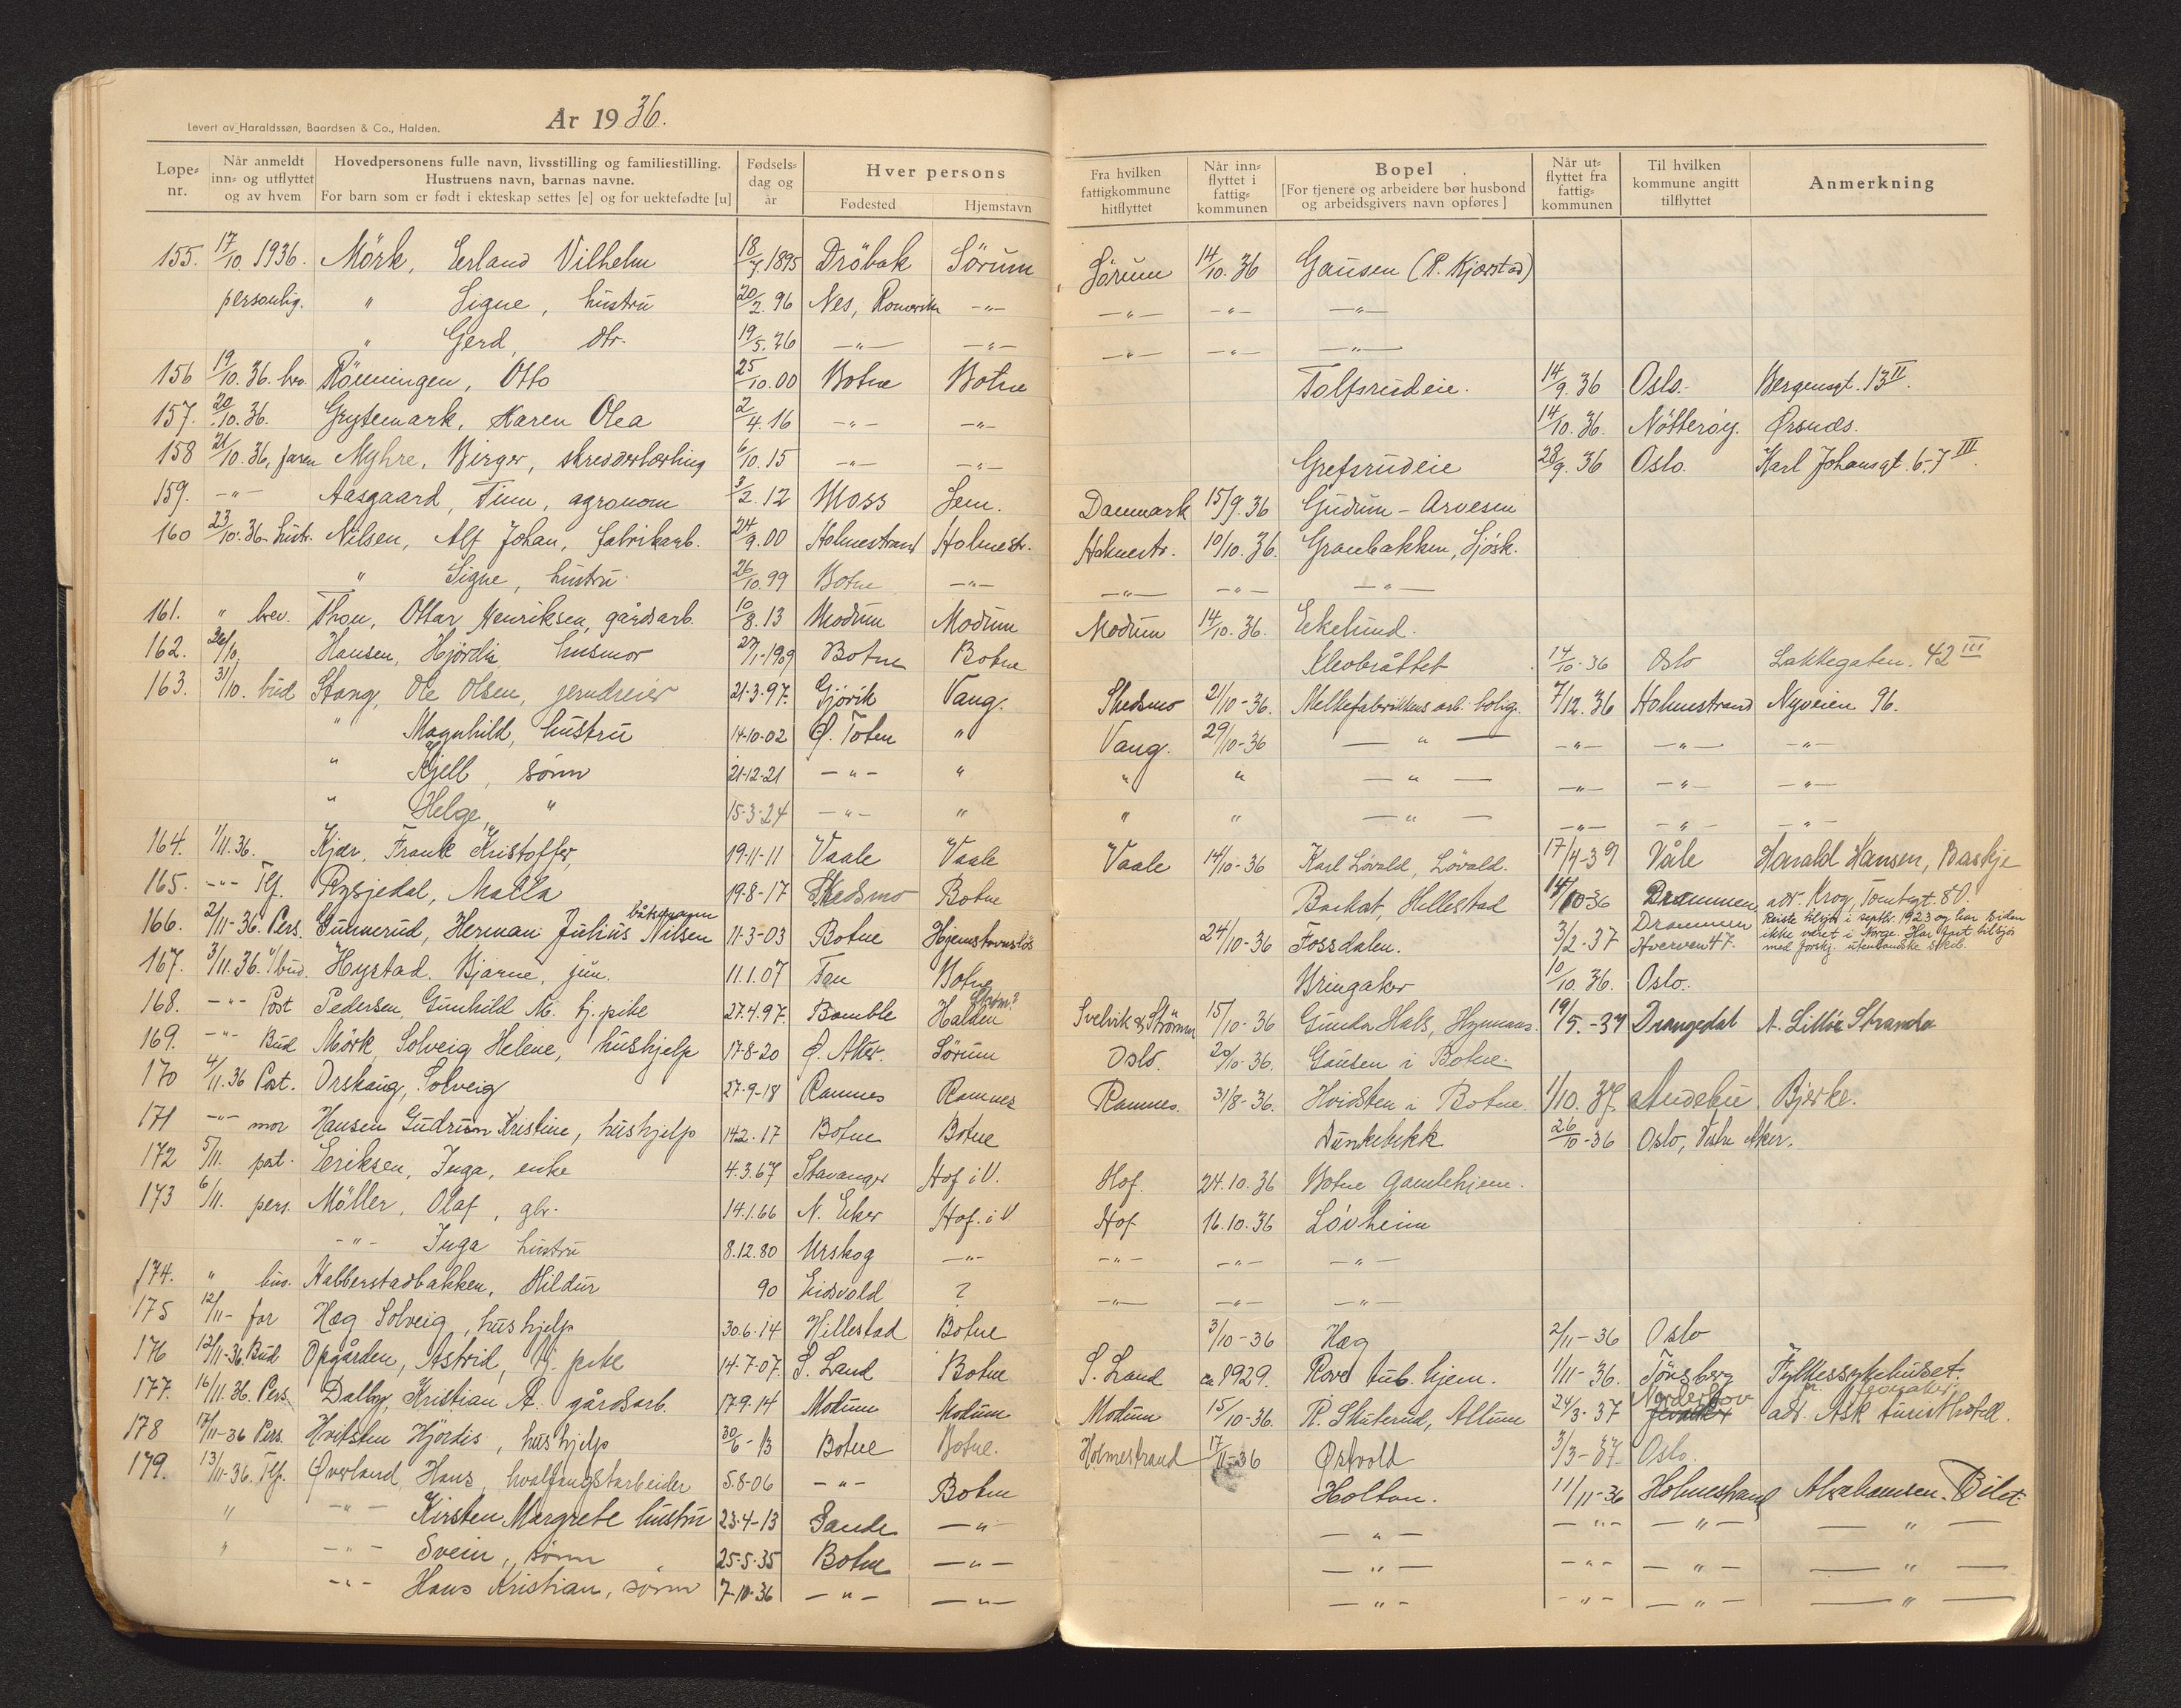 Levert av Haraldssøn, Baardsen & Co., Halden.
År 1936.
Løpe-nr. | Når anmeldt inn- og utflyttet og av hvem | Hovedpersonens fulle navn, livsstilling og familiestilling. Hustruens navn, barnas navne. For barn som er født i ekteskap settes [e] og for uektefødte [u] | Fødsels-dag og år | Hver persons Fødested | Hjemstavn | Fra hvilken fattigkommune hitflyttet | Når inn-flyttet i fattig-kommunen | Bopel [For tjenere og arbeidere bør husbond og arbeidsgivers navn opføres] | Når ut-flyttet fra fattig-kommunen | Til hvilken kommune angitt tilflyttet | Anmerkning
155. 17/10 1936. Mörk, Erland Vilhelm 18/7 1895 Dröbak Sörum Sörum 14/10. 36 Gausen (P. Kjærstad)
personlig. " Signe, hustru 20/2. 96 Nes, Romerike -"- -"- -"- -"-
" Gerd, dtr. 19/5. 26 -"- -"- -"- -"- -"-
156 19/10. 36. brev. Rönningen, Otto 25/10. 00 Botne Botne Tolfsrudeie. 14/9. 36 Oslo. Bergensgt. 13 II.
157. 20/10. 36. Grytemark, Karen Olea 2/4. 16 -"- -"- 14/10. 36. Nötteröy. Ørsnes.
158 21/10. 36, faren Myhre, Birger, skredderlærling 6/10. 15 -"- -"- Grefsrudeie 28/9. 36 Oslo. Karl Johansgt. 6-7 III.
159. -"- Aasgaard, Finn, agronom 3/2. 12 Moss Sem. Danmark 15/9. 36 Gudum - Arvesen
160 23/10. 36 hustr. Nilsen, Alf Johan, fabrikarb. 24/9. 00 Holmestrand Holmestr. Holmestr. 10/10. 36. Granbakken, Sjösk.
" Signe, hustru. 26/10. 99 Botne -"- -"- -"- -"-
161. " brev. Thon, Ottar Henriksen, gårdsarb. 10/8. 13 Modum Modum Modum 14/10. 36. Ekelund.
162. 26/10 Hansen, Hjördis, husmor 27/1-1909 Botne Botne Kleobråttet 14/10-36 Oslo Lakkegaten. 42 III
163. 31/10. bud Stang, Ole Olsen, jerndreier 21-3-97. Gjövik Vang. Skedsmo 21/10-36. Melkefabrikkens arb. bolig. 7/12. 36 Holmestrand Nyveien 96.
" Magnhild, hustru 14-10-02 Ø. Toten " Vang. 29/10-36 -"- -"- -"- -"-
" Kjell, sönn 21-12-21 -"- " " " -"- -"- -"- -"-
" Helge, " 15-3-24 -"- " " " -"- -"- -"- -"-
164. 1/11. 36. Kjær, Frank Kristoffer, 19-11-11 Vaale Vaale Vaale 14/10-36 Karl Lövald, Lövald. 17/4-39 Våle Harald Hansen, Baskje
165. -"- Tlf. Rysjedal, Malla 19-8-17 Skedsmo Botne Barhat, Hillestad 14/10-36 Drammen adr. Krog, Tomtegt. 80.
166. 2/11-36. Pers. Gunnerud, Herman Julius Nilsen båtsmann 11-3-03 Botne Hjemstavnslös 24/10-36 Fossdalen. 3/2-37 Drammen Hverven 47. Reiste tilsjös i septbr. 1923 og har siden ikke været i Norge. Har fart tilsjös med forskj. utenlandske skib.
167. 3/11. 36. bud. Hystad, Bjarne, jun. 11.1.07 Botne Bringaker 10/10. 36. Oslo.
168. -"- Post Pedersen, Gunhild M. tj. pike 27.4.97. Bamble Halden Svelvik & Strömm 15/10-36 Gunda Hals, 19/5.-37 Drangedal
169. -"- Bud Mörk, Solveig Helene, hushjelp 17-8-20 Ø. Aker. Sörum Oslo. 20/10-36. Gausen i Botne.
170 4/11. 36 Post. Orskaug, Solveig 27-9-18 Ramnes Ramnes Ramnes. 31/8-36. Hvidsten i Botne. 1/10. 37. Andebu Bjerke.
171 -"- mor Hansen Gudrun Kristine, hushjelp 14.2. 17 Botne Botne Dunkebekk 26/10-36 Oslo, Vestre Aker.
172 5/11. post. Eriksen, Inga, enke 4.3.67 Stavanger Hof i V. Hof. 24.10.36 Botne Gamlehjem.
173 6/11. pers. Möller, Olaf, gbr. 14.1.66 N. Eker Hof. i V Hof 16.10.36 Lövheim
-"- Inga hustru 8.12.80 Urskog -"- -"- -"- -"-
174. " Habberstadbakken, Hildur 90 Eidsvold ? -"- -"- -"-
175 12/11- far Hæg Solveig, hushjelp 30.6.14 Hillestad Botne 3/10-36 Hæg 2/11-36 Oslo
176 12/11-36. Bud Opgården, Astrid, tj. pike 14-7-07. S. Land Botne S. Land ca 1929. Rove tub. hjem. 1/11-36. Tönsberg Fylkessykehuset.
177. 16/11. 36. Pers. Dalby, Kristian A. gårdsarb. 17-9-14 Modum Modum Modum 15/10-36. P. Skuterud, Allum 24/3-37 Norderhov adr. Ask turisthotell.
178 17/11-36 Pers. Hvitsten Hjördis, hushjelp 30/6-13 Botne Botne. Holmestrand 17/11-36 Østvold 3/3-37 Oslo.
179. 13/11-36. Tlf. Øverland, Hans, hvalfangstarbeider 5.8-06 -"- Botne Holtan. 11/11-36 Holmestrand Abrahamsen.
" -"- Kirsten Margrete hustru 23-4-13 Sande -"- -"- -"- -"- -"-
" -"- Svein, sönn 25-5-35 Botne -"- -"- -"- -"- -"-
-"- Hans Kristian, sönn 7-10-36 -"- -"- -"- -"- -"- -"-